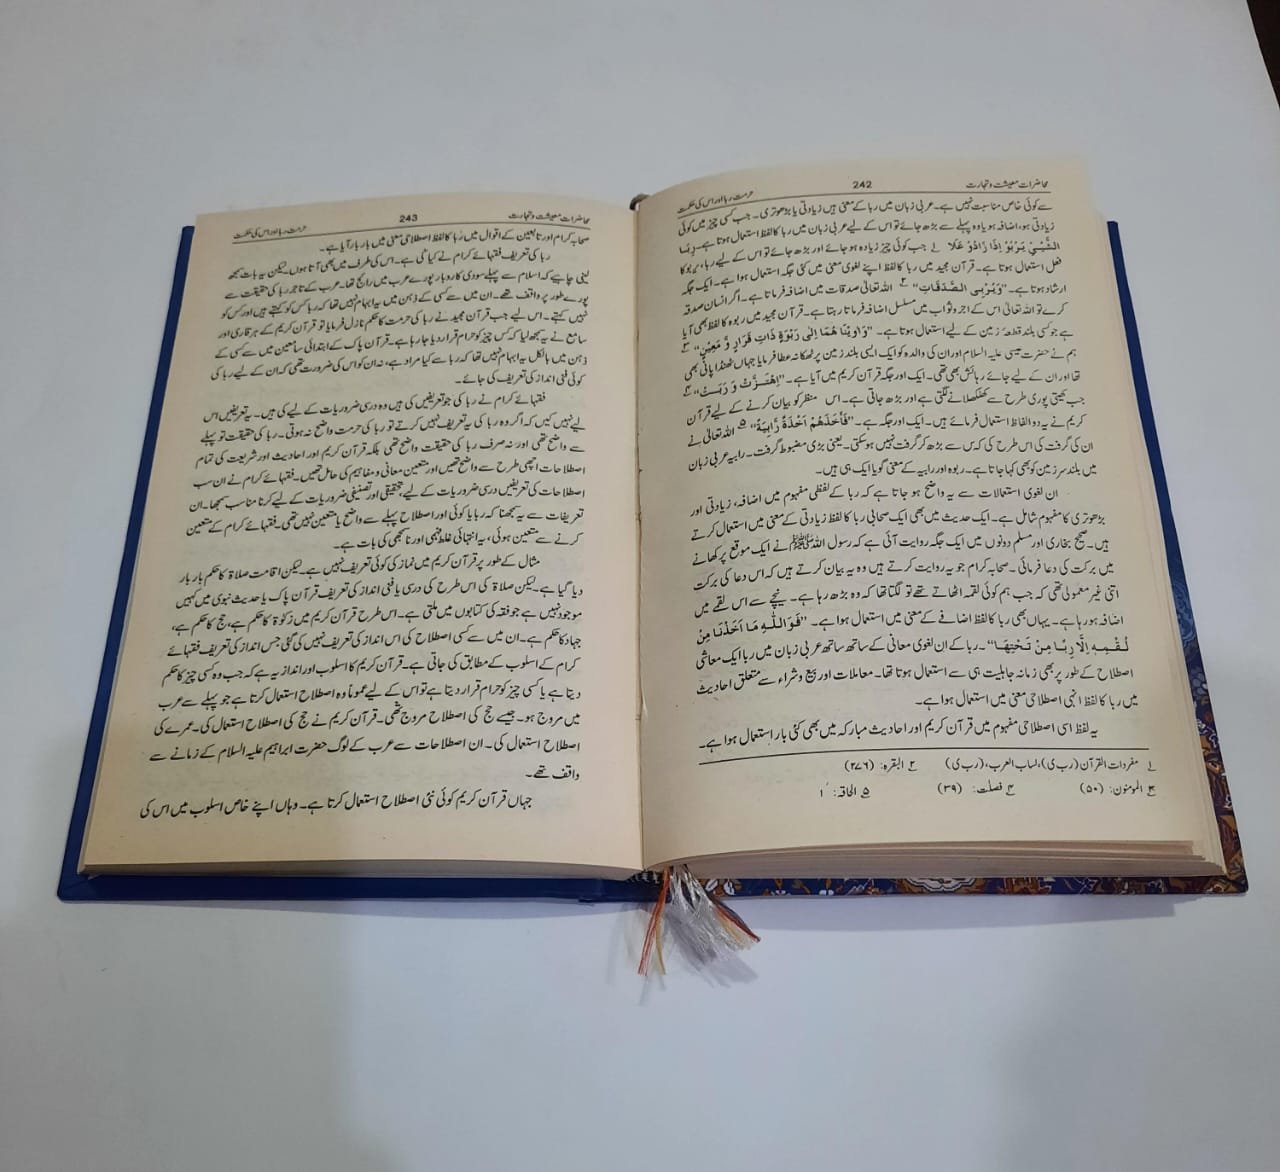 محاضرات معیشت و تجارت 242 حرمت ربا اور اس کی حکمت
سے کوئی خاص مناسبت نہیں ہے۔ عربی زبان میں ربا کے معنی ہیں زیادتی یا بڑھوتری۔ جب کسی چیز میں کوئی
زیادتی ہو، اضافہ ہو یا وہ پہلے سے بڑھ جائے تو اس کے لیے عربی زبان میں ربا کا لفظ استعمال ہوتا ہے۔ رِبَا
الشَّیْیُٔ یَرْبُوْا اِذَا زَادَوْ عَلَا ۱؎ جب کوئی چیز زیادہ ہو جائے اور بڑھ جائے تو اس کے لیے ربا، یربو کا
فعل استعمال ہوتا ہے۔ قرآن مجید میں ربا کا لفظ اپنے لغوی معنی میں کئی جگہ استعمال ہوا ہے۔ ایک جگہ
ارشاد ہوتا ہے۔ ’’وَیُرْبِی الصَّدَقٰاتِ‘‘ ۲؎ اللہ تعالیٰ صدقات میں اضافہ فرماتا ہے۔ اگر انسان صدقہ
کرے تو اللہ تعالیٰ اس کے اجر و ثواب میں مسلسل اضافہ فرماتا رہتا ہے۔ قرآن مجید میں ربوہ کا لفظ بھی آیا
ہے جو کسی بلند قطعہ زمین کے لیے استعمال ہوتا ہے۔ ’’وَ اٰوَیْنٰا هُمَا اِلٰی رَبْوَةٍ ذَاتِ قَرَارٍ وَّ مَعِیْنٍ‘‘ ۳؎
ہم نے حضرت عیسی علیہ السلام اور ان کی والدہ کو ایک ایسی بلند زمین پر ٹھکانہ عطا فرمایا جہاں ٹھنڈا پانی بھی
تھا اور ان کے لیے جائے رہائش بھی تھی۔ ایک اور جگہ قرآن کریم میں آیا ہے۔ ’’اِهْتَزَّتْ وَ رَبَتْ‘‘ ۴؎
جب کھیتی پوری طرح سے کھلکھلانے لگتی ہے اور بڑھ جاتی ہے۔ اس منظر کو بیان کرنے کے لیے قرآن
کریم نے یہ دو الفاظ استعمال فرمائے ہیں۔ ایک اور جگہ ہے۔ ’’فَاَخَذَهُمْ اَخْذَةً رَّابِیَةً‘‘ ۵؎ اللہ تعالیٰ نے
ان کی گرفت کی اس طرح کی کہ اس سے بڑھ کر گرفت نہیں ہو سکتی۔ یعنی بڑی مضبوط گرفت۔ رابیہ عربی زبان
میں بلند سر زمین کو بھی کہا جاتا ہے۔ ربوہ اور رابیہ کے معنی گویا ایک ہی ہیں۔
ان لغوی استعمالات سے یہ واضح ہو جاتا ہے کہ ربا کے لفظی مفہوم میں اضافہ، زیادتی اور
بڑھوتری کا مفہوم شامل ہے۔ ایک حدیث میں بھی ایک صحابی ربا کا لفظ زیادتی کے معنی میں استعمال کرتے
ہیں۔ صحیح بخاری اور مسلم دونوں میں ایک جگہ روایت آئی ہے کہ رسول اللہ ﷺ نے ایک موقع پر کھانے
میں برکت کی دعا فرمائی۔ صحابہ کرام جو یہ روایت کرتے ہیں وہ یہ بیان کرتے ہیں کہ اس دعا کی برکت
اتنی غیر معمولی تھی کہ جب ہم کوئی لقمہ اٹھاتے تھے تو لگتا تھا کہ وہ بڑھ رہا ہے۔ نیچے سے اس لقمے میں
اضافہ ہو رہا ہے۔ یہاں بھی ربا کا لفظ اضافے کے معنی میں استعمال ہوا ہے۔ ’’فَوَاللّٰهِ مَا اَخَذْنَا مِنْ
لُقْمِهِ اِلَّا رِبَا مِنْ تَحْتِهَا‘‘۔ ربا کے ان لغوی معانی کے ساتھ ساتھ عربی زبان میں ربا ایک معاشی
اصطلاح کے طور پر بھی زمانہ جاہلیت ہی سے استعمال ہوتا تھا۔ معاملات اور بیع و شراء سے متعلق احادیث
میں ربا کا لفظ انہی اصطلاحی معنی میں استعمال ہوا ہے۔
یہ لفظ اسی اصطلاحی مفہوم میں قرآن کریم اور احادیث مبارکہ میں بھی کئی بار استعمال ہوا ہے۔
۱؎ مفردات القرآن (رب ی)، لساب العرب، (رب ی) ۲؎ البقرہ: (۲۷۶)
۳؎ المومنون: (۵۰) ۴؎ فصلت: (۳۹) ۵؎ الحاقہ: ۱۰
محاضرات معیشت و تجارت 243 حرمت ربا اور اس کی حکمت
صحابہ کرام اور تابعین کے اقوال میں ربا کا لفظ اصطلاحی معنی میں بار بار آیا ہے۔
ربا کی تعریف فقہائے کرام نے کیا کی ہے۔ اس کی طرف میں بھی آتا ہوں۔ لیکن یہ بات سمجھ
لینی چاہیے کہ اسلام سے پہلے سودی کاروبار پورے عرب میں رائج تھا۔ عرب کے تاجر ربا کی حقیقت سے
پورے طور پر واقف تھے۔ ان میں سے کسی کے ذہن میں یہ ابہام نہیں تھا کہ ربا کس کو کہتے ہیں اور کس کو
نہیں کہتے۔ اس لیے جب قرآن مجید نے ربا کی حرمت کا حکم نازل فرمایا تو قرآن کریم کے ہر قاری اور
سامع نے یہ سمجھ لیا کہ کس چیز کو حرام قرار دیا جا رہا ہے۔ قرآن پاک کے ابتدائی سامعین میں سے کسی کے
ذہن میں بالکل یہ ابہام نہیں تھا کہ ربا سے کیا مراد ہے، نہ ان کو اس کی ضرورت تھی کہ ان کے لیے ربا کی
کوئی فنی انداز کی تعریف کی جائے۔
فقہائے کرام نے ربا کی جو تعریفیں کی ہیں وہ درسی ضروریات کے لیے کی ہیں۔ یہ تعریفیں اس
لیے نہیں کیں کہ اگر وہ ربا کی یہ تعریف نہیں کرتے تو ربا کی حرمت واضح نہ ہوتی۔ ربا کی حقیقت تو پہلے
سے واضح تھی اور نہ صرف ربا کی حقیقت واضح تھی بلکہ قرآن کریم اور احادیث اور شریعت کی تمام
اصطلاحات اچھی طرح سے واضح تھیں اور متعین معانی و مفاہیم کی حامل تھیں۔ فقہائے کرام نے ان سب
اصطلاحات کی تعریفیں درسی ضروریات کے لیے، تحقیقی اور تصنیفی ضروریات کے لیے کرنا مناسب سمجھا۔ ان
تعریفات سے یہ سمجھنا کہ ربا یا کوئی اور اصطلاح پہلے سے واضح یا متعین نہیں تھی۔ فقہائے کرام کے متعین
کرنے سے متعین ہوئی، یہ انتہائی غلط فہمی اور ناسمجھی کی بات ہے۔
مثال کے طور پر قرآن کریم میں نماز کی کوئی تعریف نہیں ہے۔ لیکن اقامت صلاۃ کا حکم بار بار
دیا گیا ہے۔ لیکن صلاۃ کی اس طرح کی درسی یا فنی انداز کی تعریف قرآن پاک یا حدیث نبوی میں کہیں
موجود نہیں ہے جو فقہ کی کتابوں میں ملتی ہے۔ اس طرح قرآن کریم میں زکوٰۃ کا حکم ہے، حج کا حکم ہے،
جہاد کا حکم ہے۔ ان میں سے کسی اصطلاح کی اس انداز کی تعریف نہیں کی گئی جس انداز کی تعریف فقہائے
کرام کے اسلوب کے مطابق کی جاتی ہے۔ قرآن کریم کا اسلوب اور انداز یہ ہے کہ جب وہ کسی چیز کا حکم
دیتا ہے یا کسی چیز کو حرام قرار دیتا ہے تو اس کے لیے عموماً وہ اصطلاح استعمال کرتا ہے جو پہلے سے عرب
میں مروج ہو۔ جیسے حج کی اصطلاح مروج تھی۔ قرآن کریم نے حج کی اصطلاح استعمال کی۔ عمرے کی
اصطلاح استعمال کی۔ ان اصطلاحات سے عرب کے لوگ حضرت ابراہیم علیہ السلام کے زمانے سے
واقف تھے۔
جہاں قرآن کریم کوئی نئی اصطلاح استعمال کرتا ہے۔ وہاں اپنے خاص اسلوب میں اس کی